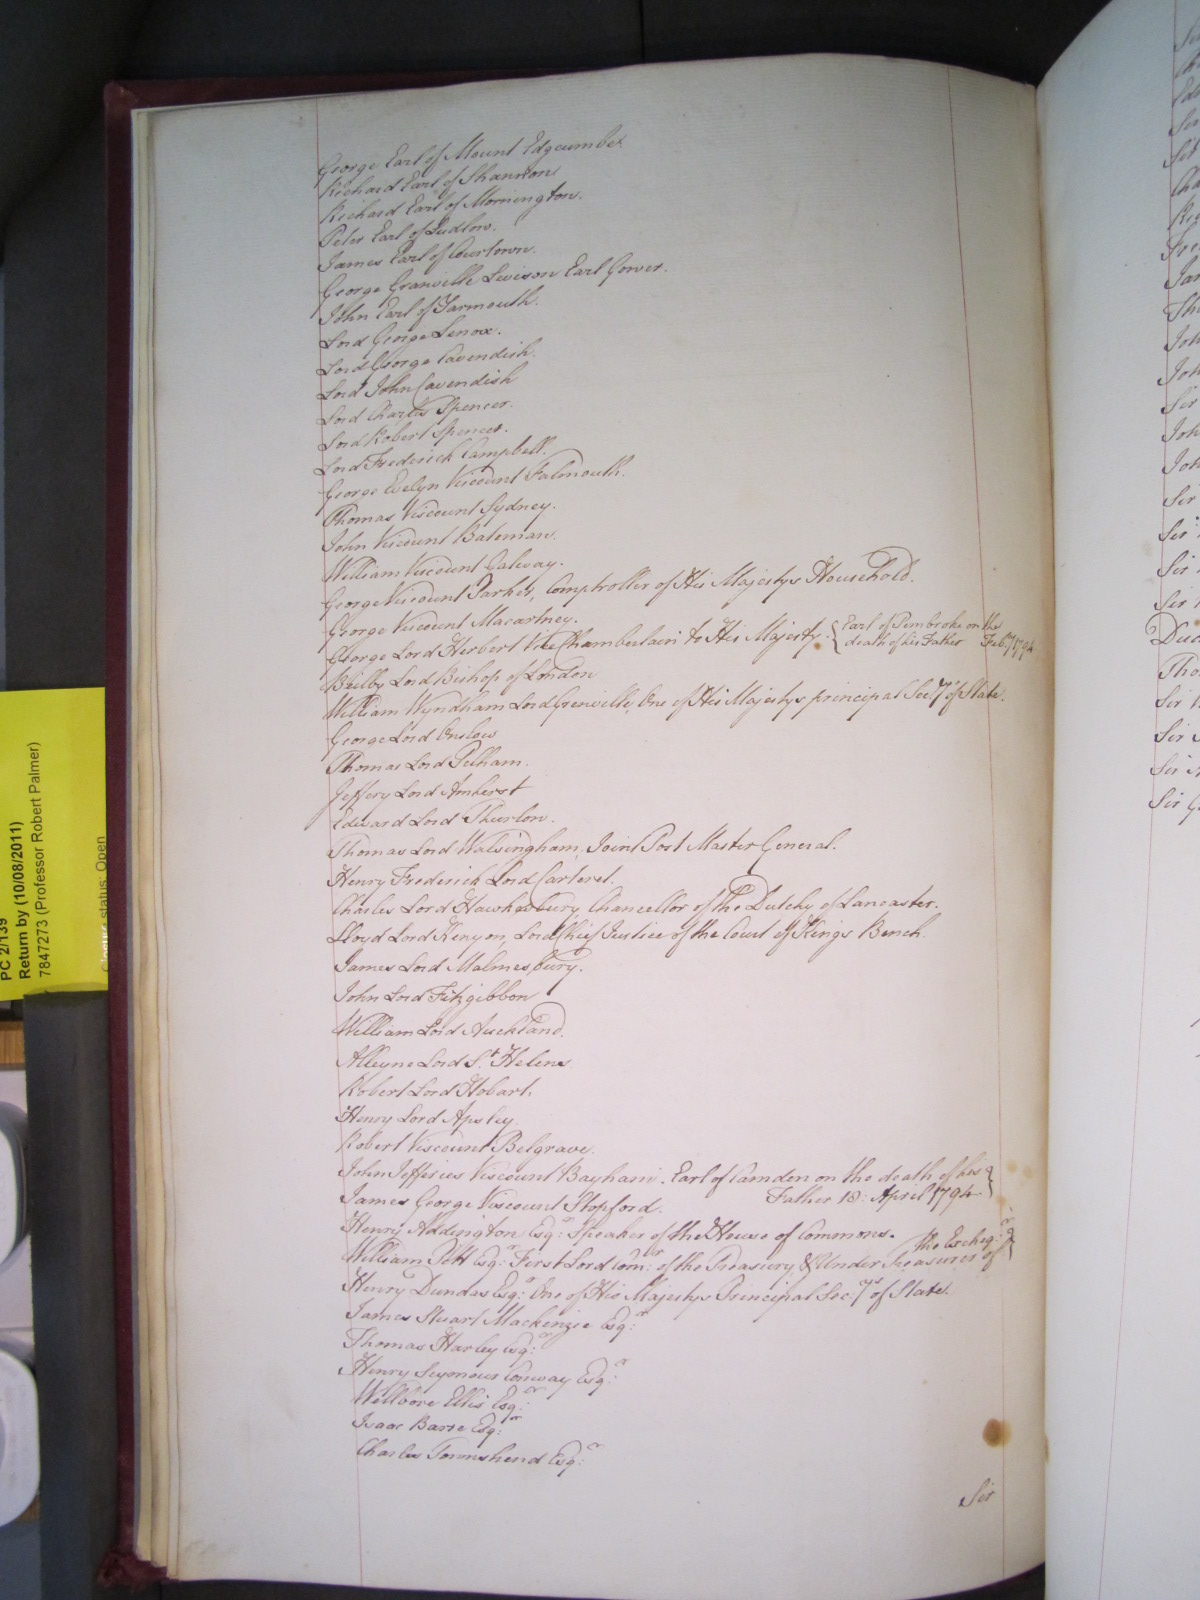 George Earl of Mount Edgcumbe
Richard Earl of Shannon
Richard Earl of Mornington.
Peter Earl of Ludlow.
James Earl of Courtown.
George Granville Leveson Earl Gower.
John Earl of Yarmouth.
Lord George Lenox.
Lord George Cavendish.
Lord John Cavendish
Lord Charles Spencer.
Lord Robert Spencer.
Lord Frederick Campbell.
George Evelyn Viscount Falmouth.
Thomas Viscount Sydney.
John Viscount Bateman.
William Viscount Galway.
George Viscount Parker, Comptroller of His Majestys Household.
George Viscount Macartney.
George Lord Herbert Vice Chamberlain to His Majesty. { Earl of Pembroke on the
death of his Father Feb.y 1794
Beilby Lord Bishop of London
William Wyndham Lord Grenville, One of His Majestys principal Sec.ys of State.
George Lord Onslow
Thomas Lord Pelham.
Jeffery Lord Amherst
Edward Lord Thurlow.
Thomas Lord Walsingham, Joint Post Master General.
Henry Frederick Lord Carteret.
Charles Lord Hawkesbury Chancellor of the Dutchy of Lancaster.
Lloyd Lord Kenyon, Lord Chief Justice of the Court of Kings Bench.
James Lord Malmesbury.
John Lord Fitzgibbon
William Lord Auckland.
Alleyne Lord St. Helens
Robert Lord Hobart.
Henry Lord Apsley.
Robert Viscount Belgrave.
John Jefferies Viscount Bayham. Earl of Camden on the death of his }
Father 18: April 1794
James George Viscount Stopford.
Henry Addington Esq:r Speaker of the House of Commons.
William Pitt Esq:r First Lord Com:r of the Treasury & Under Treasurer of
the Excheq:r }
Henry Dundas Esq:r One of His Majestys Principal Sec:ys of State.
James Stuart Mackenzie Esq:r
Thomas Harley Esq:r
Henry Seymour Conway Esq:r
Wellbore Ellis Esq:r
Isaac Barre Esq:r
Charles Townshend Esq:r
Sir
PC 2/139
Return by (10/08/2011)
7847273 (Professor Robert Palmer)
Closure status: Open